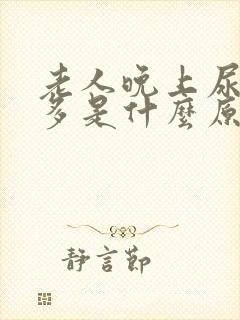 老人晚上尿
多是什麼原
靜言節